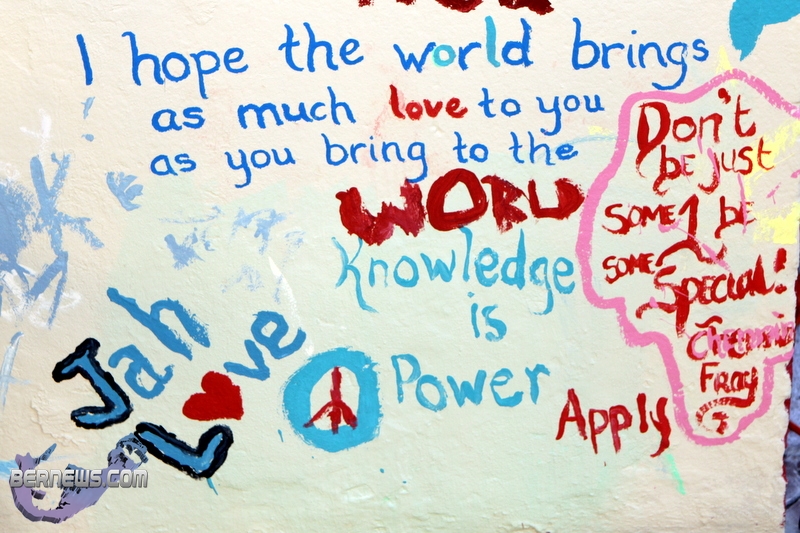 I hope the world brings
as much love to you
as you bring to the
WORLD
Knowledge
is
Power
Apply
Jah
Love
Don't
BE JUST
SOME1 BE
SOME1
SPECIAL!
FRAY
BERNEWS.COM